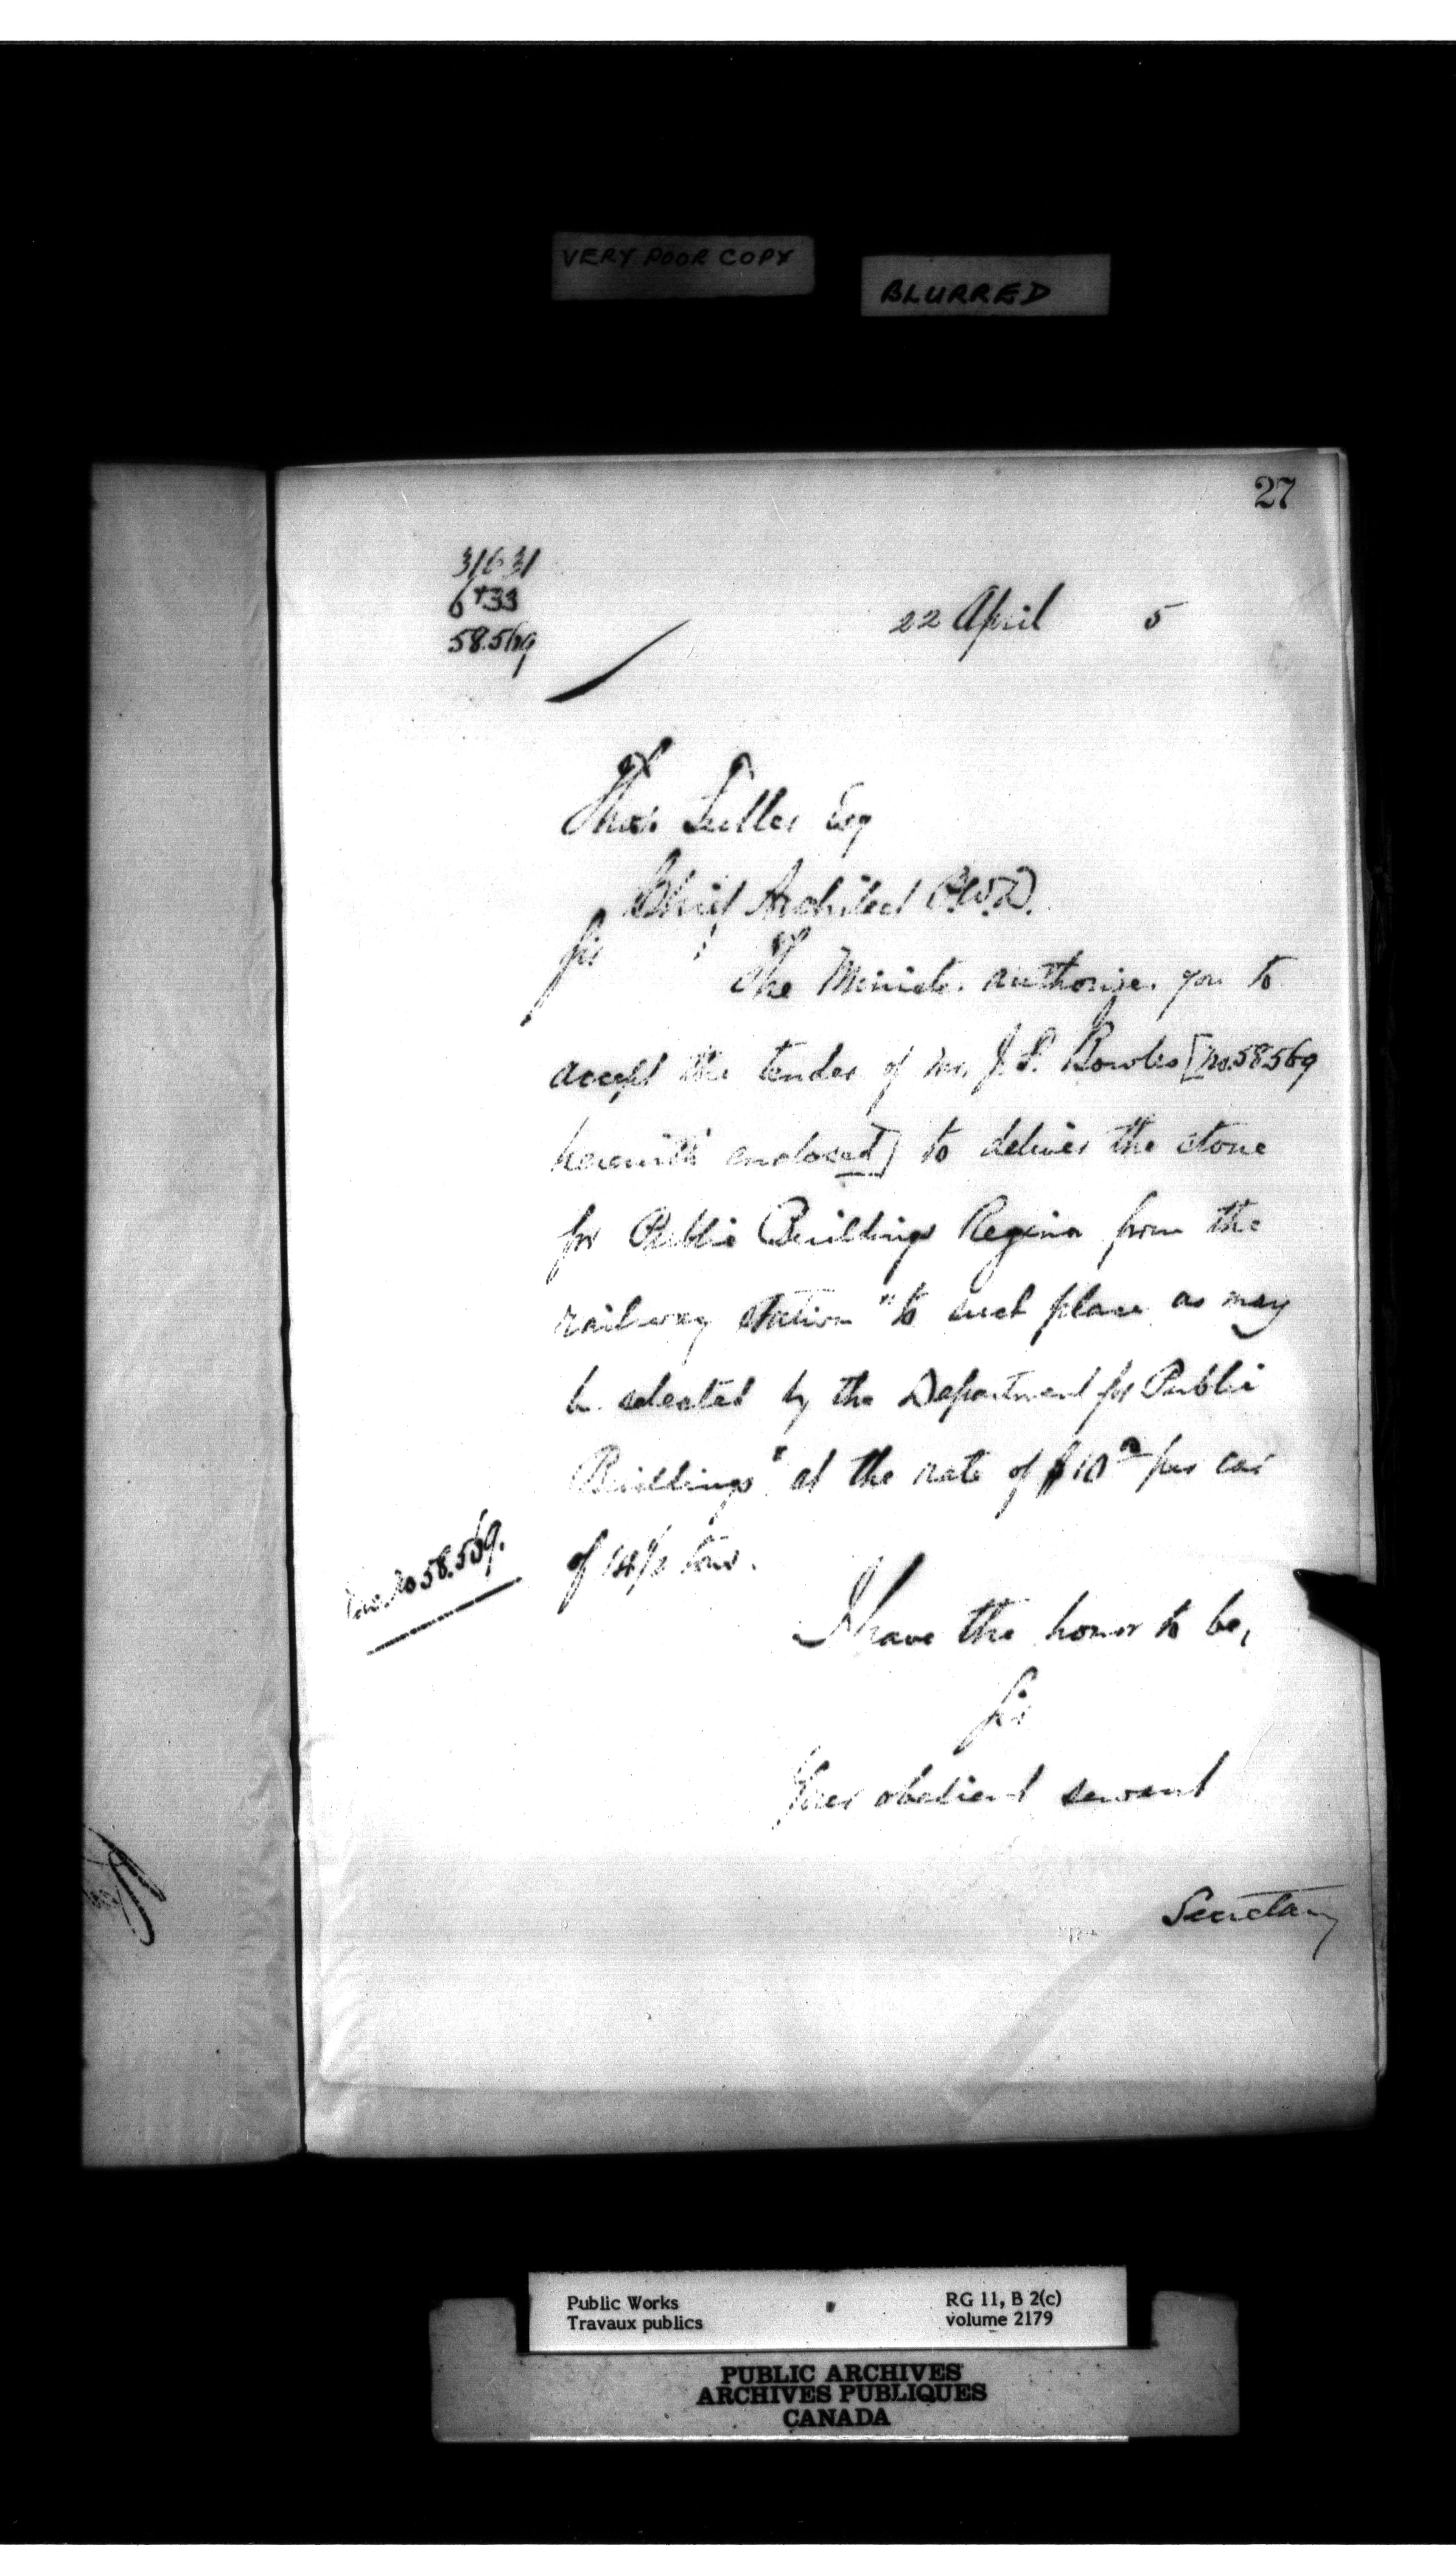 VERY POOR COPY
BLURRED
27
31631
58.569
22 April 5
Thos. Fuller Esq
Chief Architect P.W.D.
Sir
The Minister authorizes you to
accept the tender of Mr. J. S. Bowles [No. 58569
herewith enclosed] to deliver the stone
for Public Buildings Regina from the
railway station "to such place as may
be selected by the Department for Public
Buildings" at the rate of $10 per car
of 14½ tons.
No 58.569.
I have the honor to be,
Sir
Your obedient servant
Secretary
Public Works
Travaux publics
RG 11, B 2(c)
volume 2179
PUBLIC ARCHIVES
ARCHIVES PUBLIQUES
CANADA